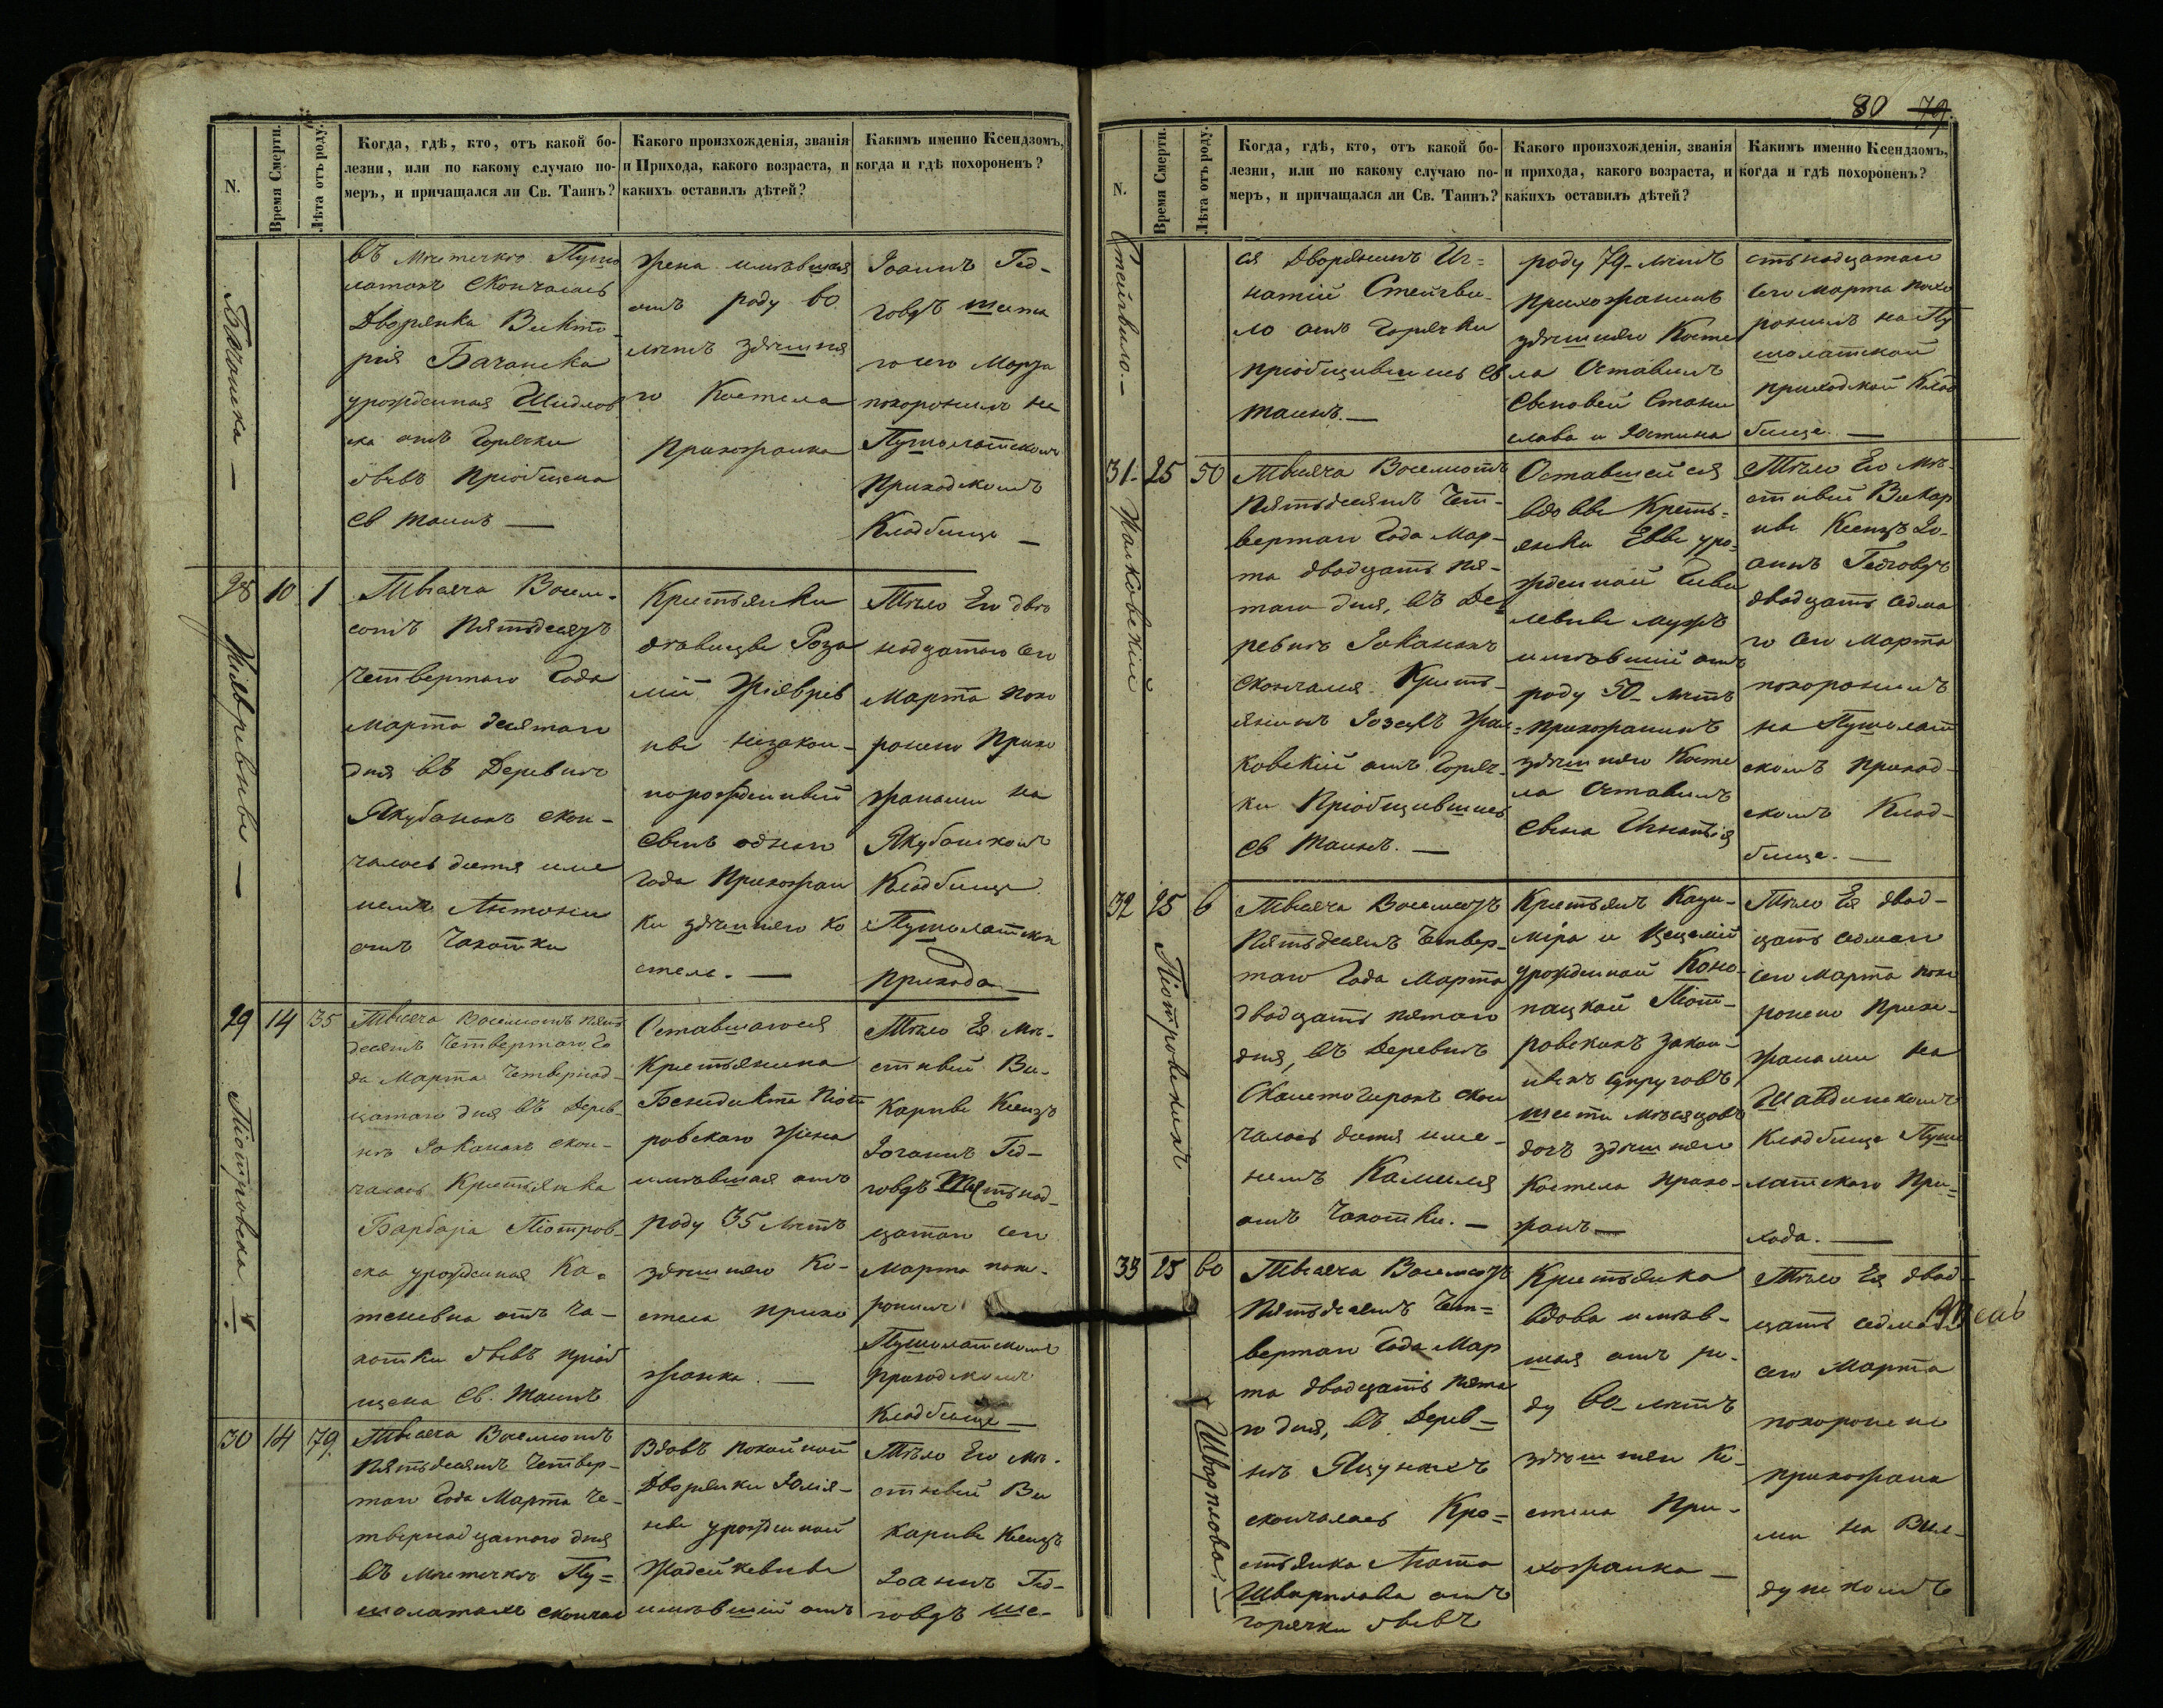 N.
Время Смерти.
Лѣта отъ роду.
Когда, гдѣ, кто, отъ какой бо-
лезни, или по какому случаю по-
меръ, и причащался ли Св. Таинъ?
Какого произхожденія, званія
и Прихода, какого возраста, и
какихъ оставилъ дѣтей?
Какимъ именно Ксендзомъ,
когда и гдѣ похороненъ?
въ мѣстечкѣ Пушо
латахъ скончалась
Дворянка Викто-
рія
урожденная Шидлов
ска отъ Горячки
бывъ пріобщена
Св таинъ —
жена имѣвшая
отъ роду 60
лѣтъ здѣшня
го Костела
Прихожанка
Іоаннъ Гед-
говдъ шеста
го сего Марта
похоронилъ на
Пушолатскомъ
Приходскомъ
Кладбище —
28
10
1
Тысяча Восем-
сотъ Пятьдесятъ
четвертаго Года
Марта десятаго
дня въ Деревнѣ
Якубанахъ скон-
чалось дитя име
немъ Антони
отъ Чахотки
Крестьянки
дѣвицы Роза
ліи
ны незакон-
норожденный
сынъ одного
года Прихожан
ки здѣшняго Ко
стела. —
Тѣло Его двѣ
надцатого сего
Марта похо
ронено Прихо
жанами на
Якубанскомъ
Кладбище
Пушолатска
прихода —
29
14
35
Піотровска. —
Тысяча Восемьсотъ пять
десятъ Четвертаго Го
да Марта Четвернад-
цатаго дня въ Дерев-
нѣ Іоканахъ скон-
чалась Крестьянка
Барбара Піотров-
ска урожденная Ка-
теневна отъ Ча-
хотки бывъ пріоб
щена Св. Таинъ
Оставшагося
Крестьянина
Бенедикта Піот
ровскаго жена
имѣвшая отъ
роду 35 лѣтъ
здѣшняго Ко-
стела прихо
жанка. —
Тѣло Ея Мѣ-
стный Ви-
карный Ксендзъ
Іоаннъ Гед-
говдъ Шестьнад-
цатаго сего
Марта похо-
ронилъ
Пушолатскомъ
приходскомъ
Кладбище —
30
14
79
Тысяча Восемьсотъ
Пятьдесятъ Четвер-
таго Года Марта Че-
твернадцатого дня
въ мѣстечкѣ Пу=
шолатахъ скончал
Вдовъ покойной
Дворянки Юлія-
ны урожденной
имѣвшій отъ
Тѣло Его Мѣ-
стный Ви
карный Ксендзъ
Іоаннъ Гед-
говдъ ше-
80 79
N.
Время Смерти.
Лѣта отъ роду.
Когда, гдѣ, кто, отъ какой бо-
лезни, или по какому случаю по-
меръ, и причащался ли Св. Таинъ?
Какого произхожденія, званія
и прихода, какого возраста, и
какихъ оставилъ дѣтей?
Какимъ именно Ксендзомъ,
когда и гдѣ похороненъ?
Стейгвило. —
ся Дворянинъ Иг=
натій Стейгви-
ло отъ Горячки
пріобщившись Св
таинъ. —
роду 79 лѣтъ
прихожанинъ
здѣшняго Косте
ла Оставилъ
Сыновей Стани
слава и Юстина
стьнадцатаго
сего Марта похо
ронилъ на Пу
шолатской
приходской Клад
бище. —
31
25
50
Жалковскій
Тысяча Восемьсотъ
Пятьдесятъ Чет-
вертаго Года Мар-
та двадцать пя-
таго дня, въ Де-
ревнѣ Іоканахъ
скончался Кресть-
янинъ Іозефъ Жал-
ковскій отъ Горяч-
ки Пріобщившись
Св Таинъ. —
Оставшейся
вдовы Кресть-
янки Евы уро-
жденной
мужъ
имѣвшій отъ
роду 50 лѣтъ
прихожанинъ
здѣшняго Косте
ла Оставилъ
Сына Игнатія
Тѣло Его Мѣ-
стный Викар
ный Ксендзъ Іо-
аннъ Гедговдъ
двадцать седма
го сего Марта
похоронилъ
на Пушолат
скомъ приход-
скомъ Клад-
бище. —
32
25
6
Піотровскихъ
Тысяча Восемьсотъ
Пятьдесятъ Четвер-
таго Года Марта
двадцать пятаго
дня, въ Деревнѣ
скон
чалось дитя име-
немъ Камиля
отъ Чахотки. —
Крестьянъ Кази-
міра и Цециліи
урожденной Коно-
пацкой Піот-
ровскихъ закон-
ныхъ супруговъ
шести мѣсяцовъ
дочь здѣшняго
Костела прихо-
жанъ —
Тѣло Ея двад-
цать седмаго
сего Марта похо
ронено Прихо-
жанами на
Шавдинскомъ
Кладбище Пушо
латскаго При=
хода. —
33
25
60
Шварплова. —
Тысяча Восемьсотъ
Пятьдесятъ Чет=
вертаго Года Мар
та двадцать пята
го дня, въ Дерев-
нѣ Яцунахъ
скончалась Кре=
стьянка Агата
Шварплова отъ
горячки бывъ
Крестьянка
вдова имѣв-
шая отъ ро-
ду 60 лѣтъ
здѣшняго Ко-
стела При-
хожанка —
Тѣло Ея двад-
цать седмаго
сего Марта
похоронено
прихожана
ми на